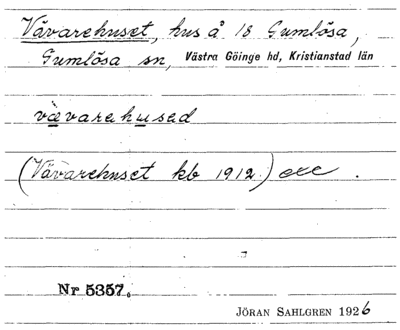 Vävarehuset, hus å 18 Gumlösa,
Gumlösa sn, Västra Göinge hd, Kristianstad län
vävarehused
(Vävarehuset kb 1912.)
Nr 5357.
JÖRAN SAHLGREN 1926